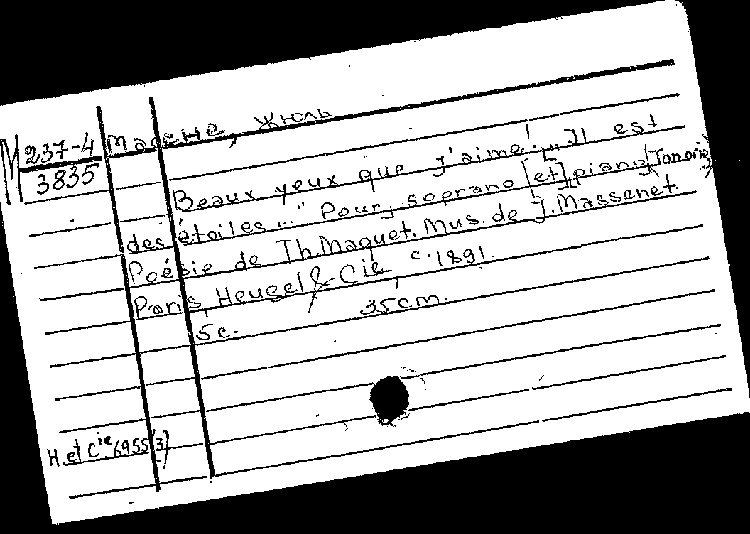 М 237-4 Масснэ, Жюль
3835
Beaux yeux que j'aime! „Il est
des étoiles..." Pour soprano [et] piano
Poésie de Th. Maquet. Mus. de J. Massenet.
Paris, Heugel & Cie, c. 1891.
5 c. 35 cm.
H. et Cie 6955(3)